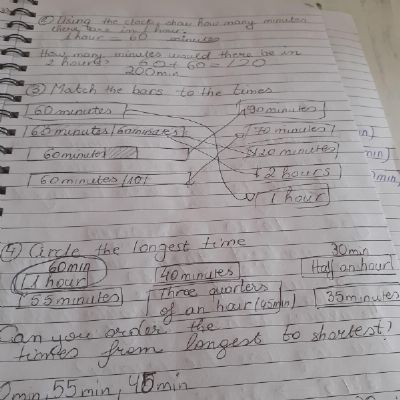 ② Using the clock, show how many minutes
there are in 1 hour.
1 hour = 60 minutes
How many minutes would there be in
2 hours? 60 + 60 = 120
200 min
③ Match the bars to the times
60 minutes
90 minutes
60 minutes 60 minutes
70 minutes
60 minutes
120 minutes
60 minutes 10
2 hours
1 hour
Circle the longest time
60 min
1 hour
40 minutes
30 min
Half an hour
55 minutes
Three quarters
of an hour (45 min)
35 minutes
Can you order the
times from longest to shortest?
min, 55 min, 45 min